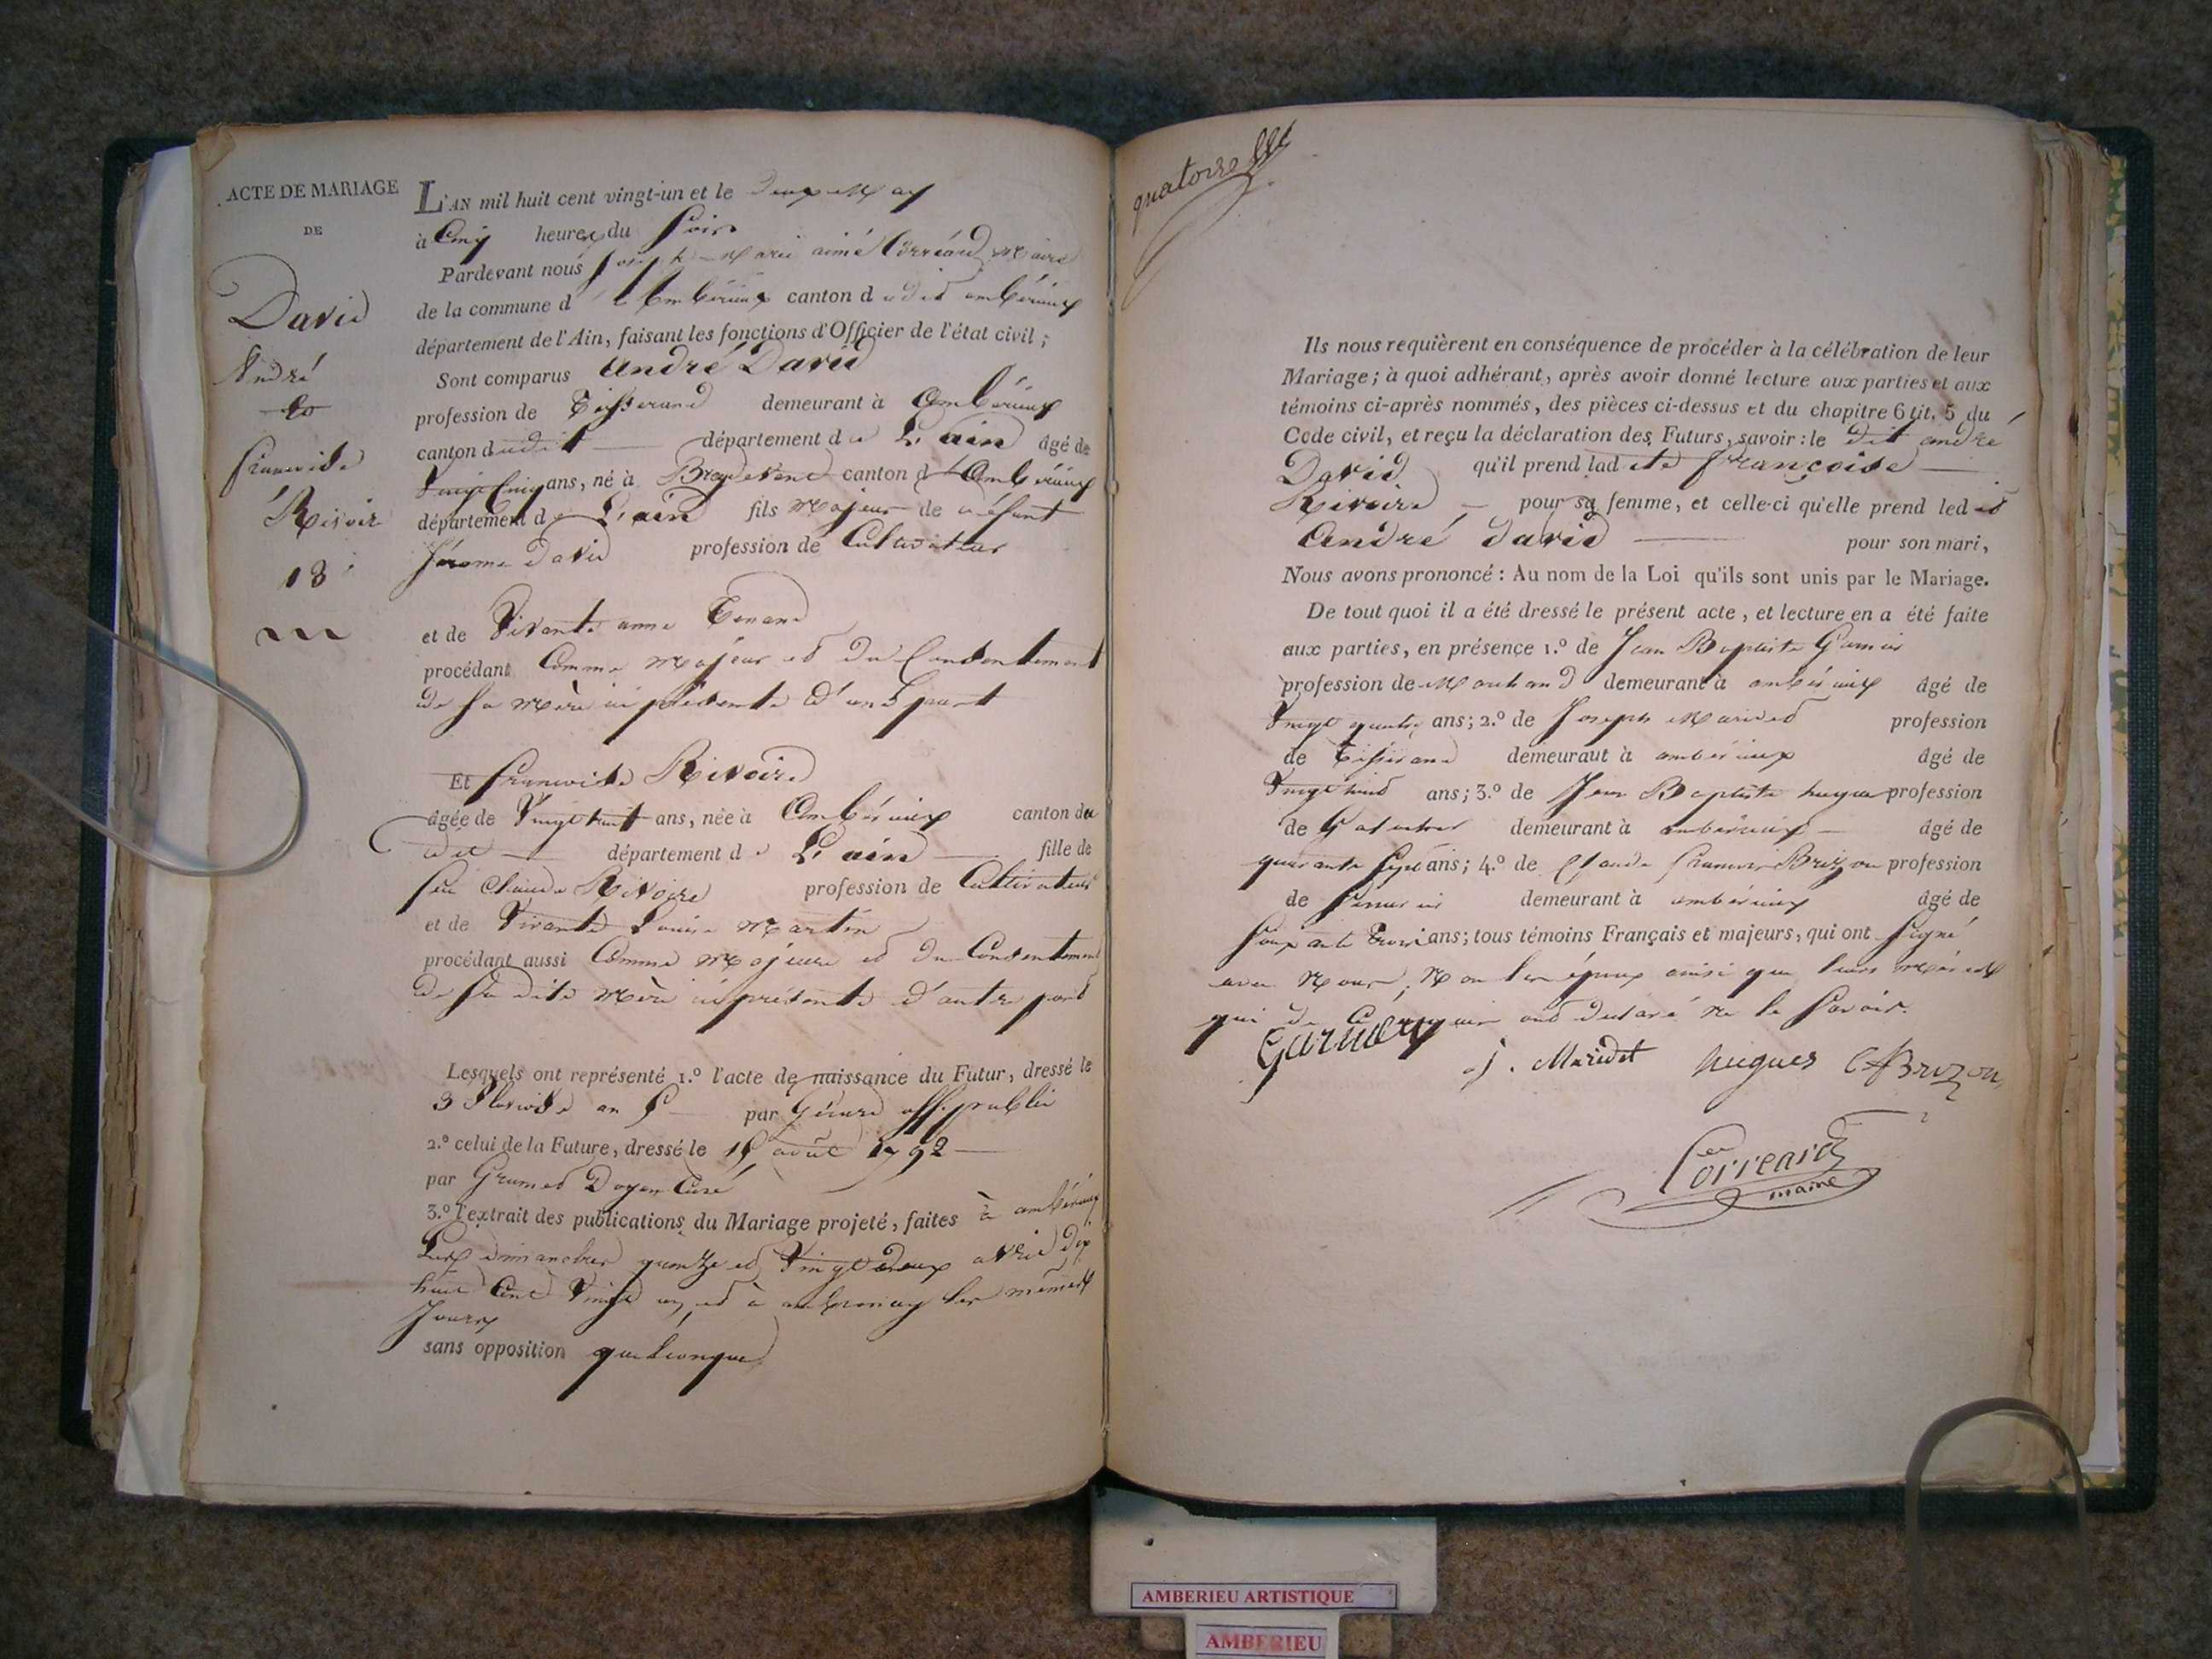 ACTE DE MARIAGE
DE
David
André
&
francoise
Rivoir
13
L'AN mil huit cent vingt-un et le deux May
à Cinq heures du Soir
Pardevant nous Joseph Marie aimé Corréard Maire
de la commune d'Ambérieux canton dudit ambérieux
département de l'Ain, faisant les fonctions d'Officier de l'état civil;
Sont comparus André David
profession de Tisserand demeurant à Ambérieux
canton dudit département de L'ain âgé de
Vingt Cinq ans, né à canton d'Ambérieux
département de L'ain fils Majeur de défunt
Jérome David profession de Cultivateur
et de Vivante anne Tenand
procédant Comme Majeur et du Consentement
de sa Mère ici présente d'une part
Et francoise Rivoire
âgée de Vingt huit ans, née à Ambérieux canton du
dit département de L'ain fille de
feu Claude Rivoire profession de Cultivateur
et de Vivante Louise Martin
procédant aussi Comme Majeure et du Consentement
de sa dite Mère ici présente d'autre part
Lesquels ont représenté 1.º l'acte de naissance du Futur, dressé le
3 Pluviose an par off. public
2.º celui de la Future, dressé le août 1792
par Grumet Doyen Curé
3.º l'extrait des publications du Mariage projeté, faites à ambérieux
Les dimanches quinze et Vingt deux avril dix
huit Cent Vingt un, et à ambronay les mêmes
Jours
sans opposition quelconque
quatorze
Ils nous requièrent en conséquence de procéder à la célébration de leur
Mariage; à quoi adhérant, après avoir donné lecture aux parties et aux
témoins ci-après nommés, des pièces ci-dessus et du chapitre 6 tit. 5 du
Code civil, et reçu la déclaration des Futurs, savoir: le dit andré
David qu'il prend ladite françoise
Rivoire pour sa femme, et celle-ci qu'elle prend ledit
André david pour son mari,
Nous avons prononcé: Au nom de la Loi qu'ils sont unis par le Mariage.
De tout quoi il a été dressé le présent acte, et lecture en a été faite
aux parties, en présence 1.º de Jean Baptiste Garnier
profession de Marchand demeurant à ambérieux âgé de
Vingt quatre ans; 2.º de Joseph Maridet profession
de Tisserand demeuraut à ambérieux âgé de
Vingt huit ans; 3.º de Jean Baptiste hugues profession
de demeurant à ambérieux âgé de
quarante Sept ans; 4.º de Claude francois Brizon profession
de demeurant à ambérieux âgé de
Soixante Trois ans; tous témoins Français et majeurs, qui ont Signé
avec Nous, Non les époux ainsi que leurs Mères
qui de ce requis ont déclaré ne le Savoir.
Garnier
j. Maridet hugues CfBrizon
Correard
maire
AMBERIEU ARTISTIQUE
AMBERIEU